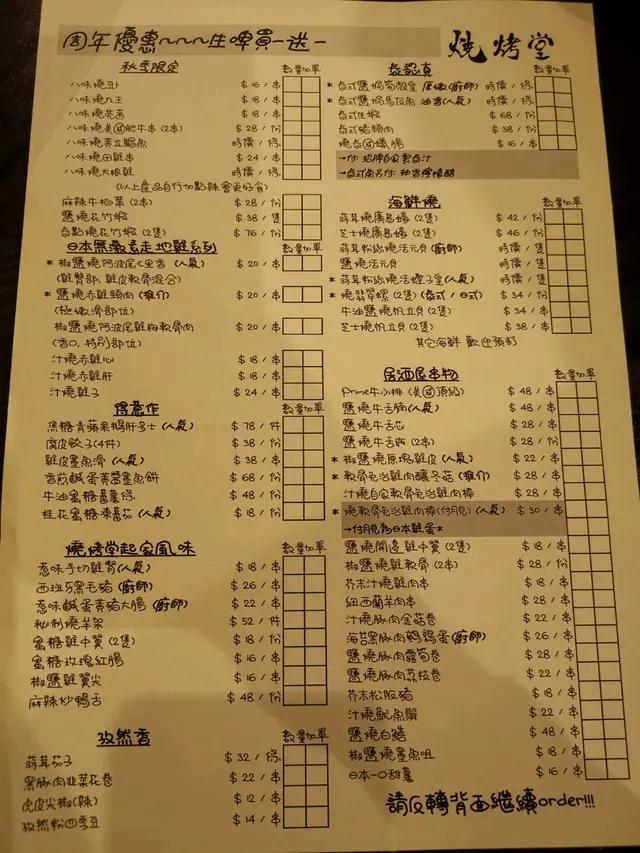 周年優惠~~~生啤買一送一
燒烤堂
秋季限定 數量 加單
八味燒豆卜 $16/串
八味燒九王 $18/串
八味燒茄苗 $18/串
八味燒美國肥牛串(2串) $28/份
八味燒黃立鯧魚 時價/條
八味燒田雞串 $24/串
八味燒大眼雞 時價/條
(以上產品自行加點辣會更好食)
麻辣牛柏葉(2串) $28/份
鹽燒花竹蝦 $38/隻
香點燒花竹蝦(2隻) $76/份
日本無激素走地雞系列 數量 加單
* 椒鹽燒阿波尾七里香(人氣) $20/串
(雞臀部,雞皮軟骨混合)
* 鹽燒赤雞頸肉(推介) $20/串
(極嫩滑部位)
椒鹽燒阿波尾雞胸軟骨肉 $20/串
(香口,特別部位)
汁燒赤雞心 $18/串
汁燒赤雞肝 $18/串
汁燒雞子 $24/串
得意作 數量 加單
焦糖青蘋果鵝肝多士(人氣) $78/件
腐皮餃子(4件) $38/份
雞皮墨魚滑(人氣) $38/串
香煎鹹蛋黃醬墨魚餅 $68/份
牛油蜜糖蕃薯條 $48/份
桂花蜜糖凍蕃茄(人氣) $18/份
燒烤堂起家風味 數量 加單
惹味手切雞腎(人氣) $18/串
西班牙黑毛豬(廚師) $26/串
惹味鹹蛋黃豬大腸(廚師) $22/串
秘制燒羊架 $52/件
蜜糖雞中翼(2隻) $18/份
蜜糖玫瑰紅腸 $16/串
椒鹽雞翼尖 $16/串
麻辣炒鴨舌 $48/份
孜然香 數量 加單
蒜茸茄子 $32/條
黑豚肉韮菜花卷 $22/串
虎皮尖椒(辣) $12/串
孜然粉四季豆 $14/串
泰認真 數量 加單
* 泰式鹽燒葡萄皇 厚嫩(廚師) 時價/條
* 泰式鹽燒馬友魚 油香(人氣) 時價/條
泰式生蝦 $68/份
泰式豬頸肉 $38/份
燒泰國爉腸 $16/串
→付 招牌自家製泰汁
→泰式魚另付 秘香檸檬醋
海鮮燒 數量 加單
蒜茸燒廣島蠔(2隻) $42/份
芝士燒廣島蠔(2隻) $46/份
蒜茸粉絲燒活元貝(廚師) 時價/隻
鹽燒元貝 時價/隻
* 蒜茸粉絲燒活蟶子皇(人氣) 時價/隻
* 燒翡翠螺(2隻)(泰式/日式) $34/份
牛油鹽燒帆立貝(2隻) $34/串
芝士燒帆立貝(2隻) $38/串
其它海鮮 歡迎預訂
居酒屋串物 數量 加單
Prime牛小排(美國頂級) $48/串
鹽燒牛舌腩(人氣) $48/串
鹽燒牛舌芯 $28/串
鹽燒牛舌粒(2串) $28/份
* 椒鹽燒原塊雞皮(人氣) $22/串
* 軟骨免治雞肉釀冬菇(推介) $28/串
汁燒自家軟骨免治雞肉棒 $28/串
* 燒軟骨免治雞肉棒(付月見)(人氣) $30/串
→付月見為日本雞蛋*
鹽燒開邊雞中翼(2隻) $18/串
椒鹽燒雞軟骨(2串) $28/份
芥末汁燒雞肉串 $18/串
紐西蘭羊肉串 $28/串
汁燒豚肉金菇卷 $22/串
海苔黑豚肉鵪鶉蛋(廚師) $26/串
鹽燒豚肉露筍卷 $28/串
鹽燒豚肉荔枝卷 $22/串
芥末松阪豬 $18/串
汁燒魷魚鬚 $22/串
鹽燒白鱔 $48/串
椒鹽燒墨魚咀 $18/串
日本一口甜薯 $16/串
請反轉背面繼續order!!!